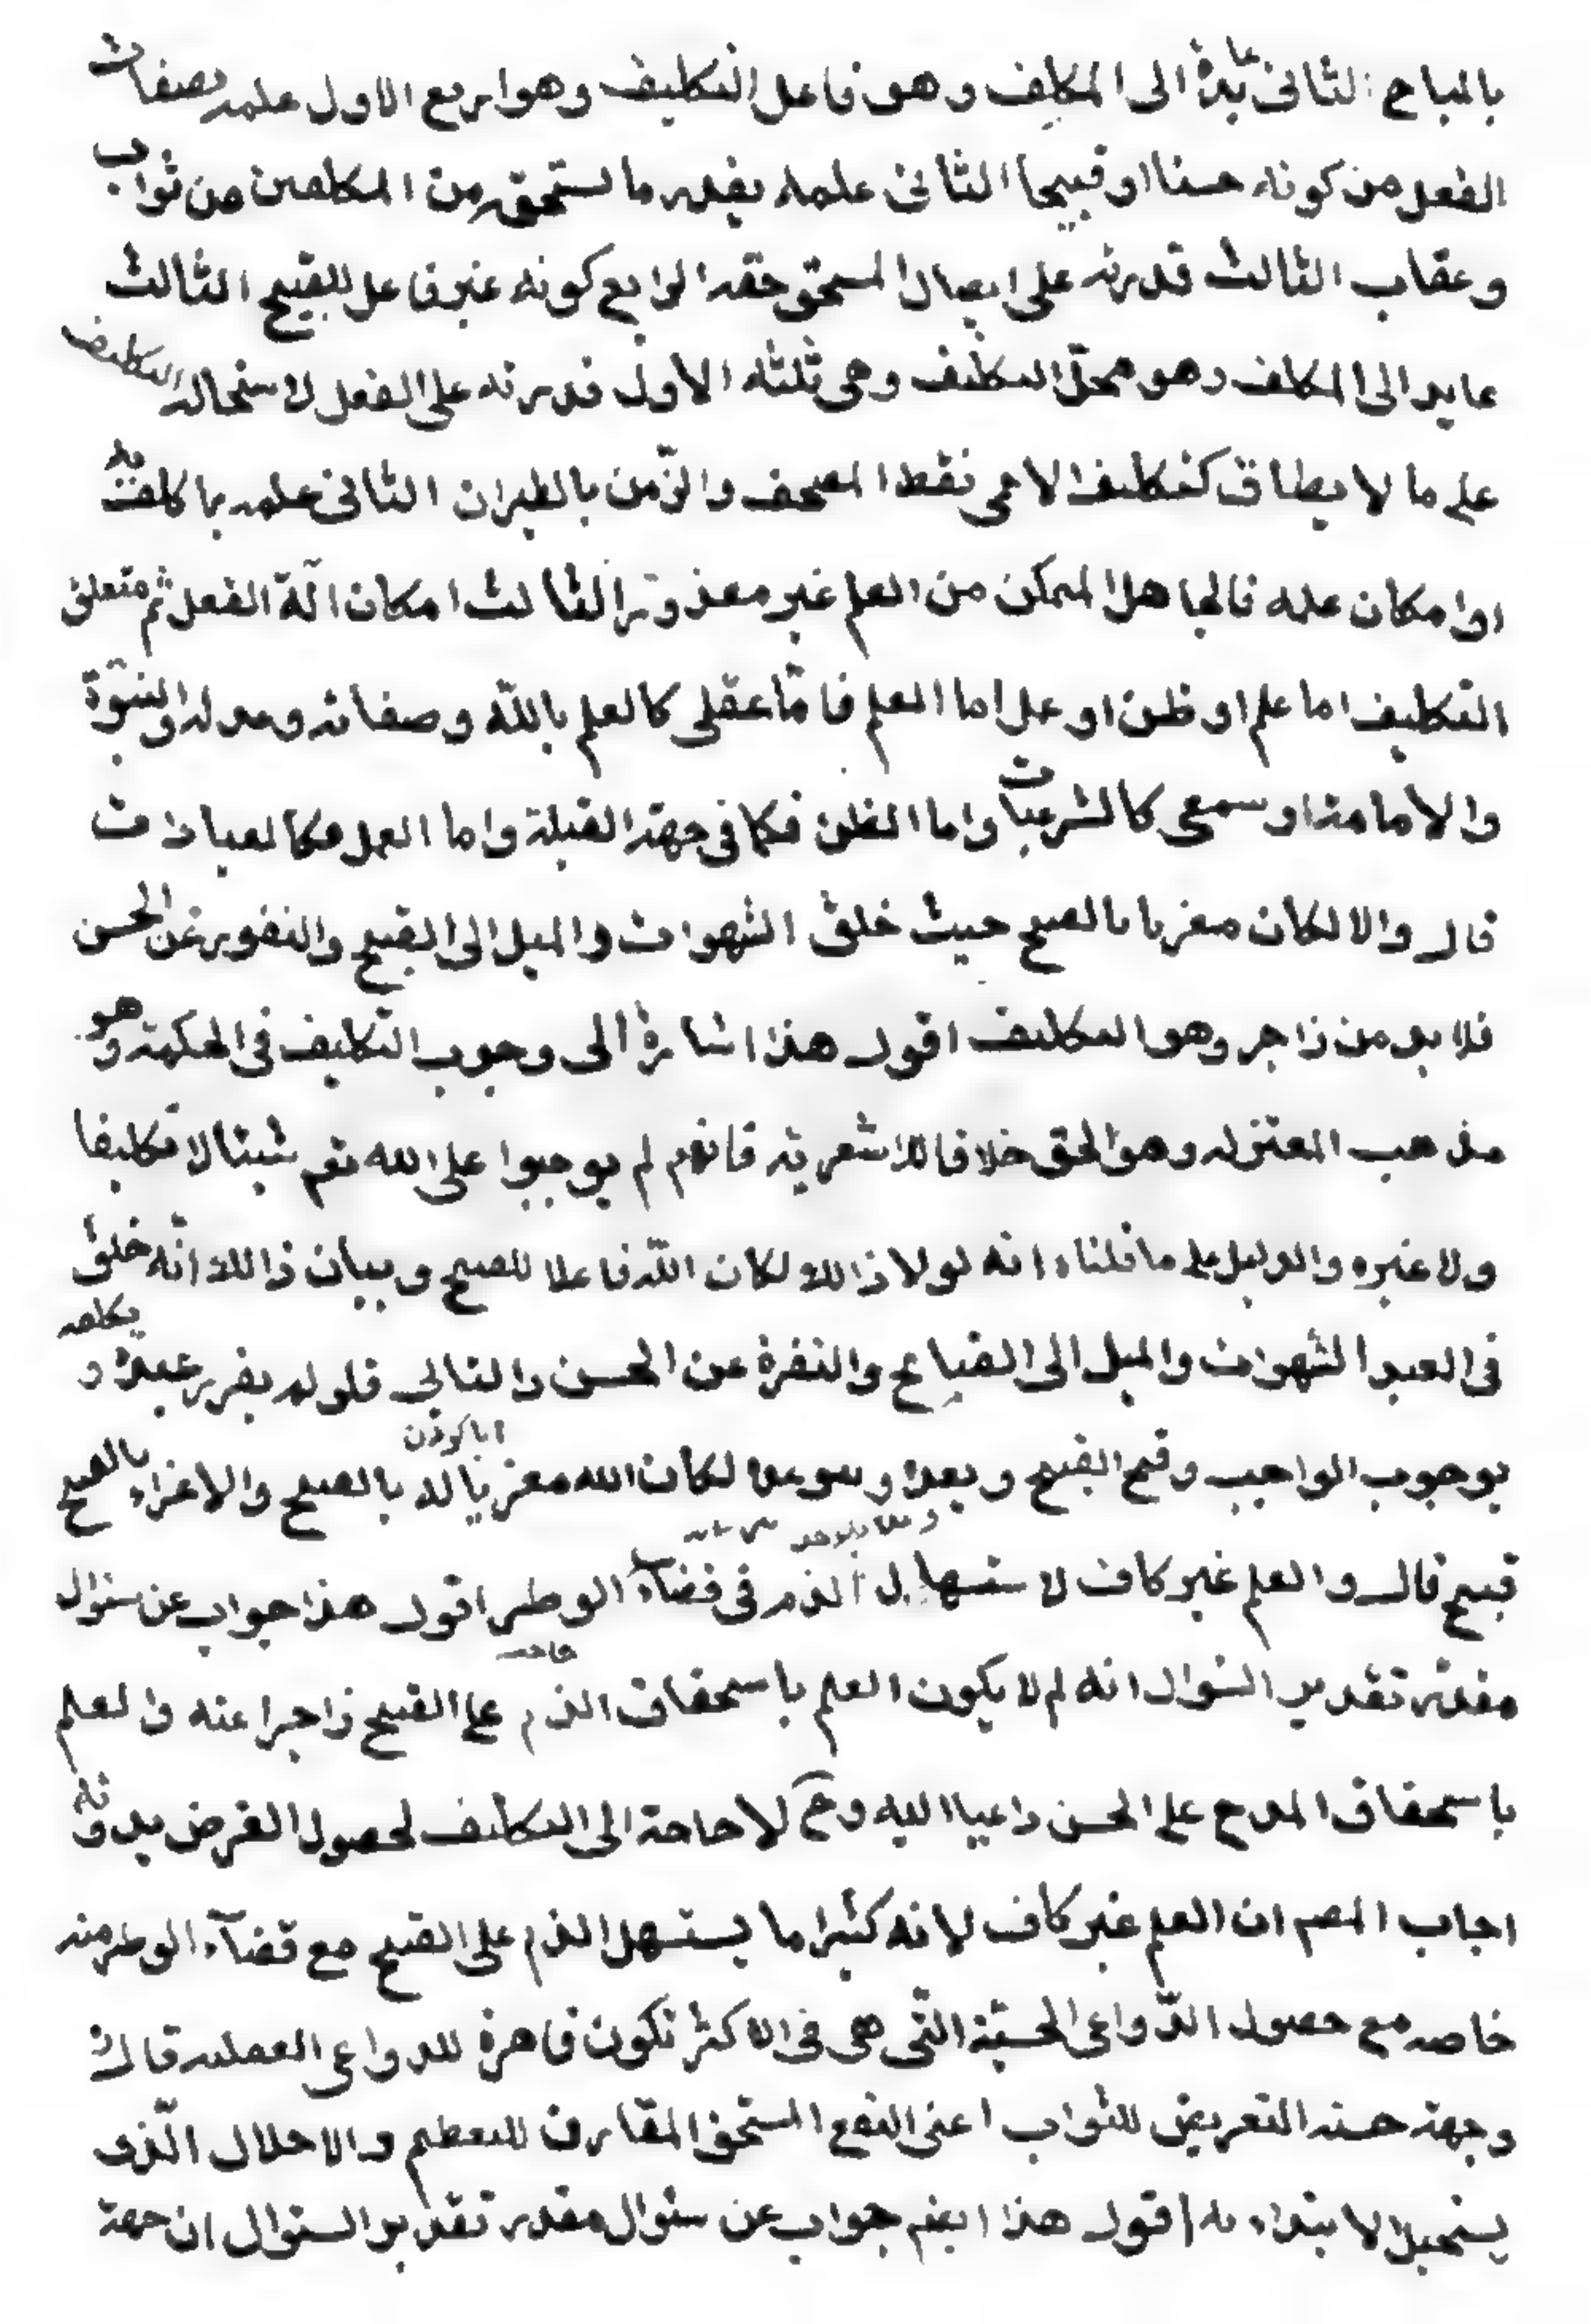 بالمباح الثانى عايدة الى المكلِف وهو فاعل التكليف وهو اربع الاول علمه بصفات
الفعل من كونه حسنا او قبيحا الثانى علمه بقدر ما يستحق من المكلفين من ثواب
وعقاب الثالث قدرته على ايصال المستحق حقه الرابع كونه غير فاعل للقبيح الثالث
عايد الى المكلف وهو محل التكليف وهى ثلثه الاول قدرته على الفعل لاستحالة التكليف
على ما لا يطاق كتكليف الاعمى نقط المصحف والزمن بالطيران الثانى علمه بما كلف به
او امكان علمه فالجاهل المتمكن من العلم غير معذور الثالث امكان آلة الفعل ثم متعلق
التكليف اما علم او ظن او عمل اما العلم فاما عقلى كالعلم بالله وصفاته وعدله والنبوة
والامامة او سمعى كالشرعيات واما الظن فكما فى جهة القبلة واما العمل فكالعبادات
قال والا لكان مغريا بالقبيح حيث خلق الشهوات والميل الى القبيح والنفور عن الحسن
فلا بد من زاجر وهو التكليف اقول هذا اشارة الى وجوب التكليف فى الحكمة وهو
مذهب المعتزله وهو الحق خلافا للاشعرية فانهم لم يوجبوا على الله تعم شيئا لا تكليفا
ولا غيره والدليل على ما قلناه انه لولا ذالك لكان الله فاعلا للقبيح وبيان ذالك انه خلق
فى العبد الشهوات والميل الى القبايح والنفرة عن الحسن والتالى فلو لم يقرر عنده و يكلفه
بوجوب الواجب وقبح القبيح ويعده ويتوعده لكان الله مغريا له بالقبيح والاغراء بالقبيح
قبيح قال والعلم غير كاف لاستسهال الذم فى قضاء الوطر اقول هذا جواب عن سئوال
مقدر تقدير السئوال انه لم لا يكون العلم باستحقاق الذم على القبيح زاجرا عنه والعلم
باستحقاق المدح على الحسن داعيا اليه وح لا حاجة الى التكليف لحصول الغرض بدونه
اجاب المصم ان العلم غير كاف لانه كثيرا ما يستسهل الذم على القبيح مع قضآء الوطر منه
خاصه مع حصول الدواعى الحسية التى هى فى الاكثر تكون قاهرة للدواعى العقليه قال
وجهة حسنه التعريض للثواب اعنى النفع المستحق المقارن للتعظيم والاجلال الذى
يستحيل الابتداء به اقول هذا ايضم جواب عن سئوال مقدر تقدير السئوال ان جهة